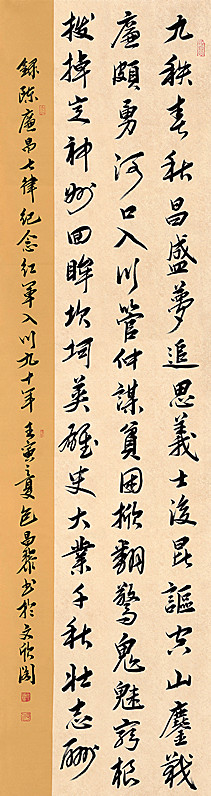 九秩春秋昌盛夢追思義士後昆謳空山鏖戰
廉頗勇河口入川管仲謀負固掀翻驚鬼魅窮根
拔掉定神州回眸坎坷英雄史大業千秋壯志酬
錄陈廉帛七律紀念紅軍入川九十年壬寅之夏包昌黎书於文欣阁